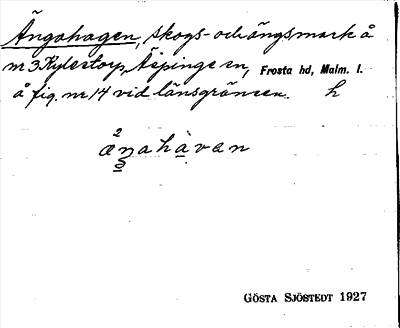 Ängahagen, skogs- och ängsmark å
nr 3 Kylestorp, Äspinge sn, Frosta hd, Malm. l.
å fig. nr 14 vid länsgränsen. h
2
æŋahàvan
3
GÖSTA SJÖSTEDT 1927